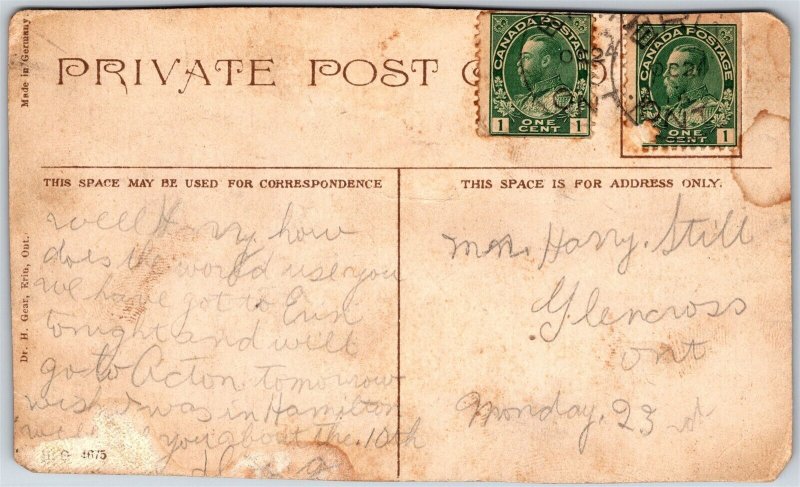 PRIVATE POST C
CANADA POSTAGE
1 ONE CENT 1
CANADA POSTAGE
ONE CENT 1
Made in Germany
THIS SPACE MAY BE USED FOR CORRESPONDENCE
THIS SPACE IS FOR ADDRESS ONLY.
Dr. H. Gear, Erin, Ont.
Well Harry how
does the world use you
we have got to Erin
tonight and will
go to Acton tomorrow
was in Hamilton
you about the 10th
4675
Mr. Harry. Still
Glencross
ont
Monday, 23rd